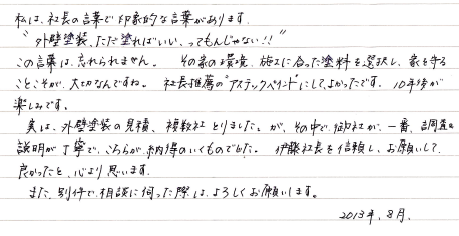 私は、社長の言葉で印象的な言葉があります。
"外壁塗装、ただ塗ればいい、ってもんじゃない!!"
この言葉は、忘れられません。 その家の環境、施工に合った塗料を選択し、家を守る
ことこそが、大切なんですね。 社長推薦の"アステックペイント"にして、よかったです。 10年後が
楽しみです。
実は、外壁塗装の見積、複数社とりました。が、その中で、御社が、一番、調査の
説明が丁寧で、こちらが納得のいくものでした。 伊藤社長を信頼し、お願いして、
良かったと、心より思います。
また、別件で、相談に伺った際は、よろしくお願いします。
2013年、8月.